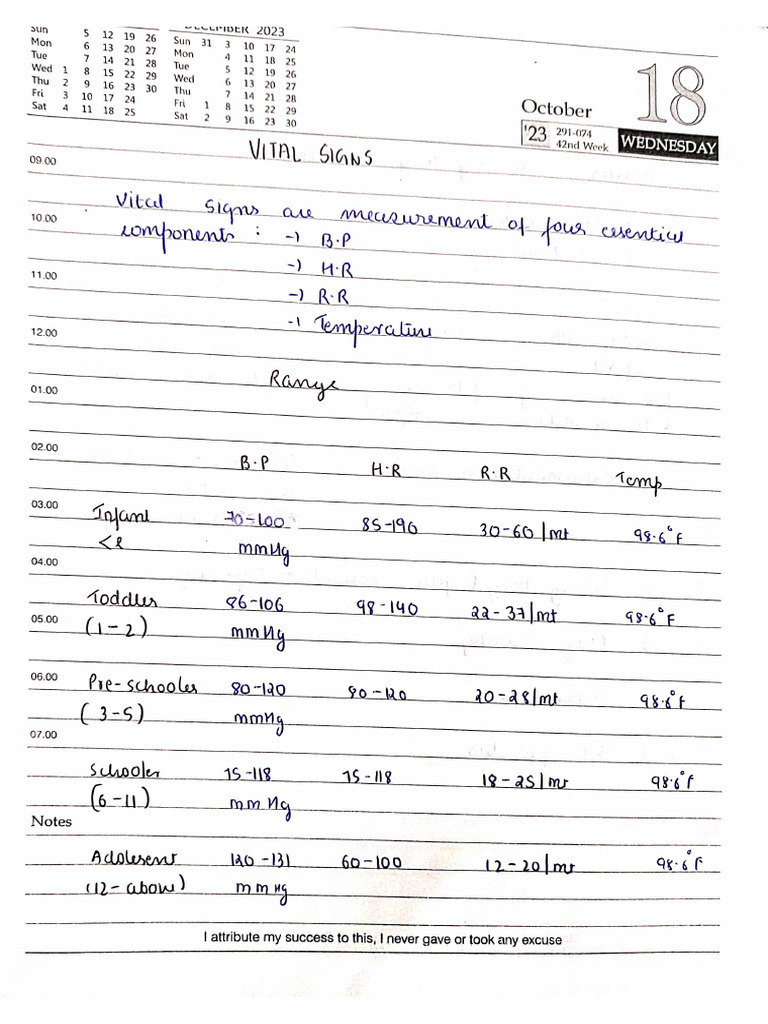 DECEMBER 2023
Sun 5 12 19 26 Sun 31 3 10 17 24
Mon 6 13 20 27 Mon 4 11 18 25
Tue 7 14 21 28 Tue 5 12 19 26
Wed 1 8 15 22 29 Wed 6 13 20 27
Thu 2 9 16 23 30 Thu 7 14 21 28
Fri 3 10 17 24 Fri 1 8 15 22 29
Sat 4 11 18 25 Sat 2 9 16 23 30
18
October
'23 291-074
42nd Week
WEDNESDAY
VITAL SIGNS
09.00
Vital signs are measurement of four essential
10.00
components : -) B.P
-) H.R
11.00
-) R.R
-) Temperature
12.00
Range
01.00
02.00
B.P H.R R.R Temp
03.00
Infant 70-100 85-190 30-60/mt 98.6°F
<1 mmHg
04.00
Toddler 86-106 98-140 22-37/mt 98.6°F
05.00
(1-2) mmHg
06.00
Pre-schooler 80-120 80-120 20-28/mt 98.6°F
(3-5) mmHg
07.00
Schooler 75-118 75-118 18-25/mt 98.6°F
(6-11) mmHg
Notes
Adolesent 120-131 60-100 12-20/mt 98.6°F
(12-above) mmHg
I attribute my success to this, I never gave or took any excuse